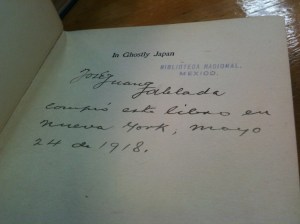 In Ghostly Japan
BIBLIOTECA NACIONAL
MEXICO.
José Juan Tablada
compró este libro en
Nueva York, mayo
24 de 1918.